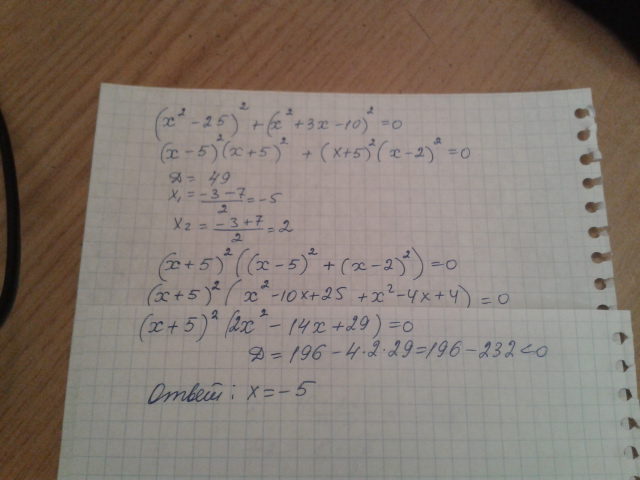 (x² - 25)² + (x² + 3x - 10)² = 0
(x - 5)²(x + 5)² + (x + 5)²(x - 2)² = 0
D = 49
x₁ = (-3 - 7)/2 = -5
x₂ = (-3 + 7)/2 = 2
(x + 5)²((x - 5)² + (x - 2)²) = 0
(x + 5)²(x² - 10x + 25 + x² - 4x + 4) = 0
(x + 5)²(2x² - 14x + 29) = 0
D = 196 - 4·2·29 = 196 - 232 < 0
Ответ: x = -5